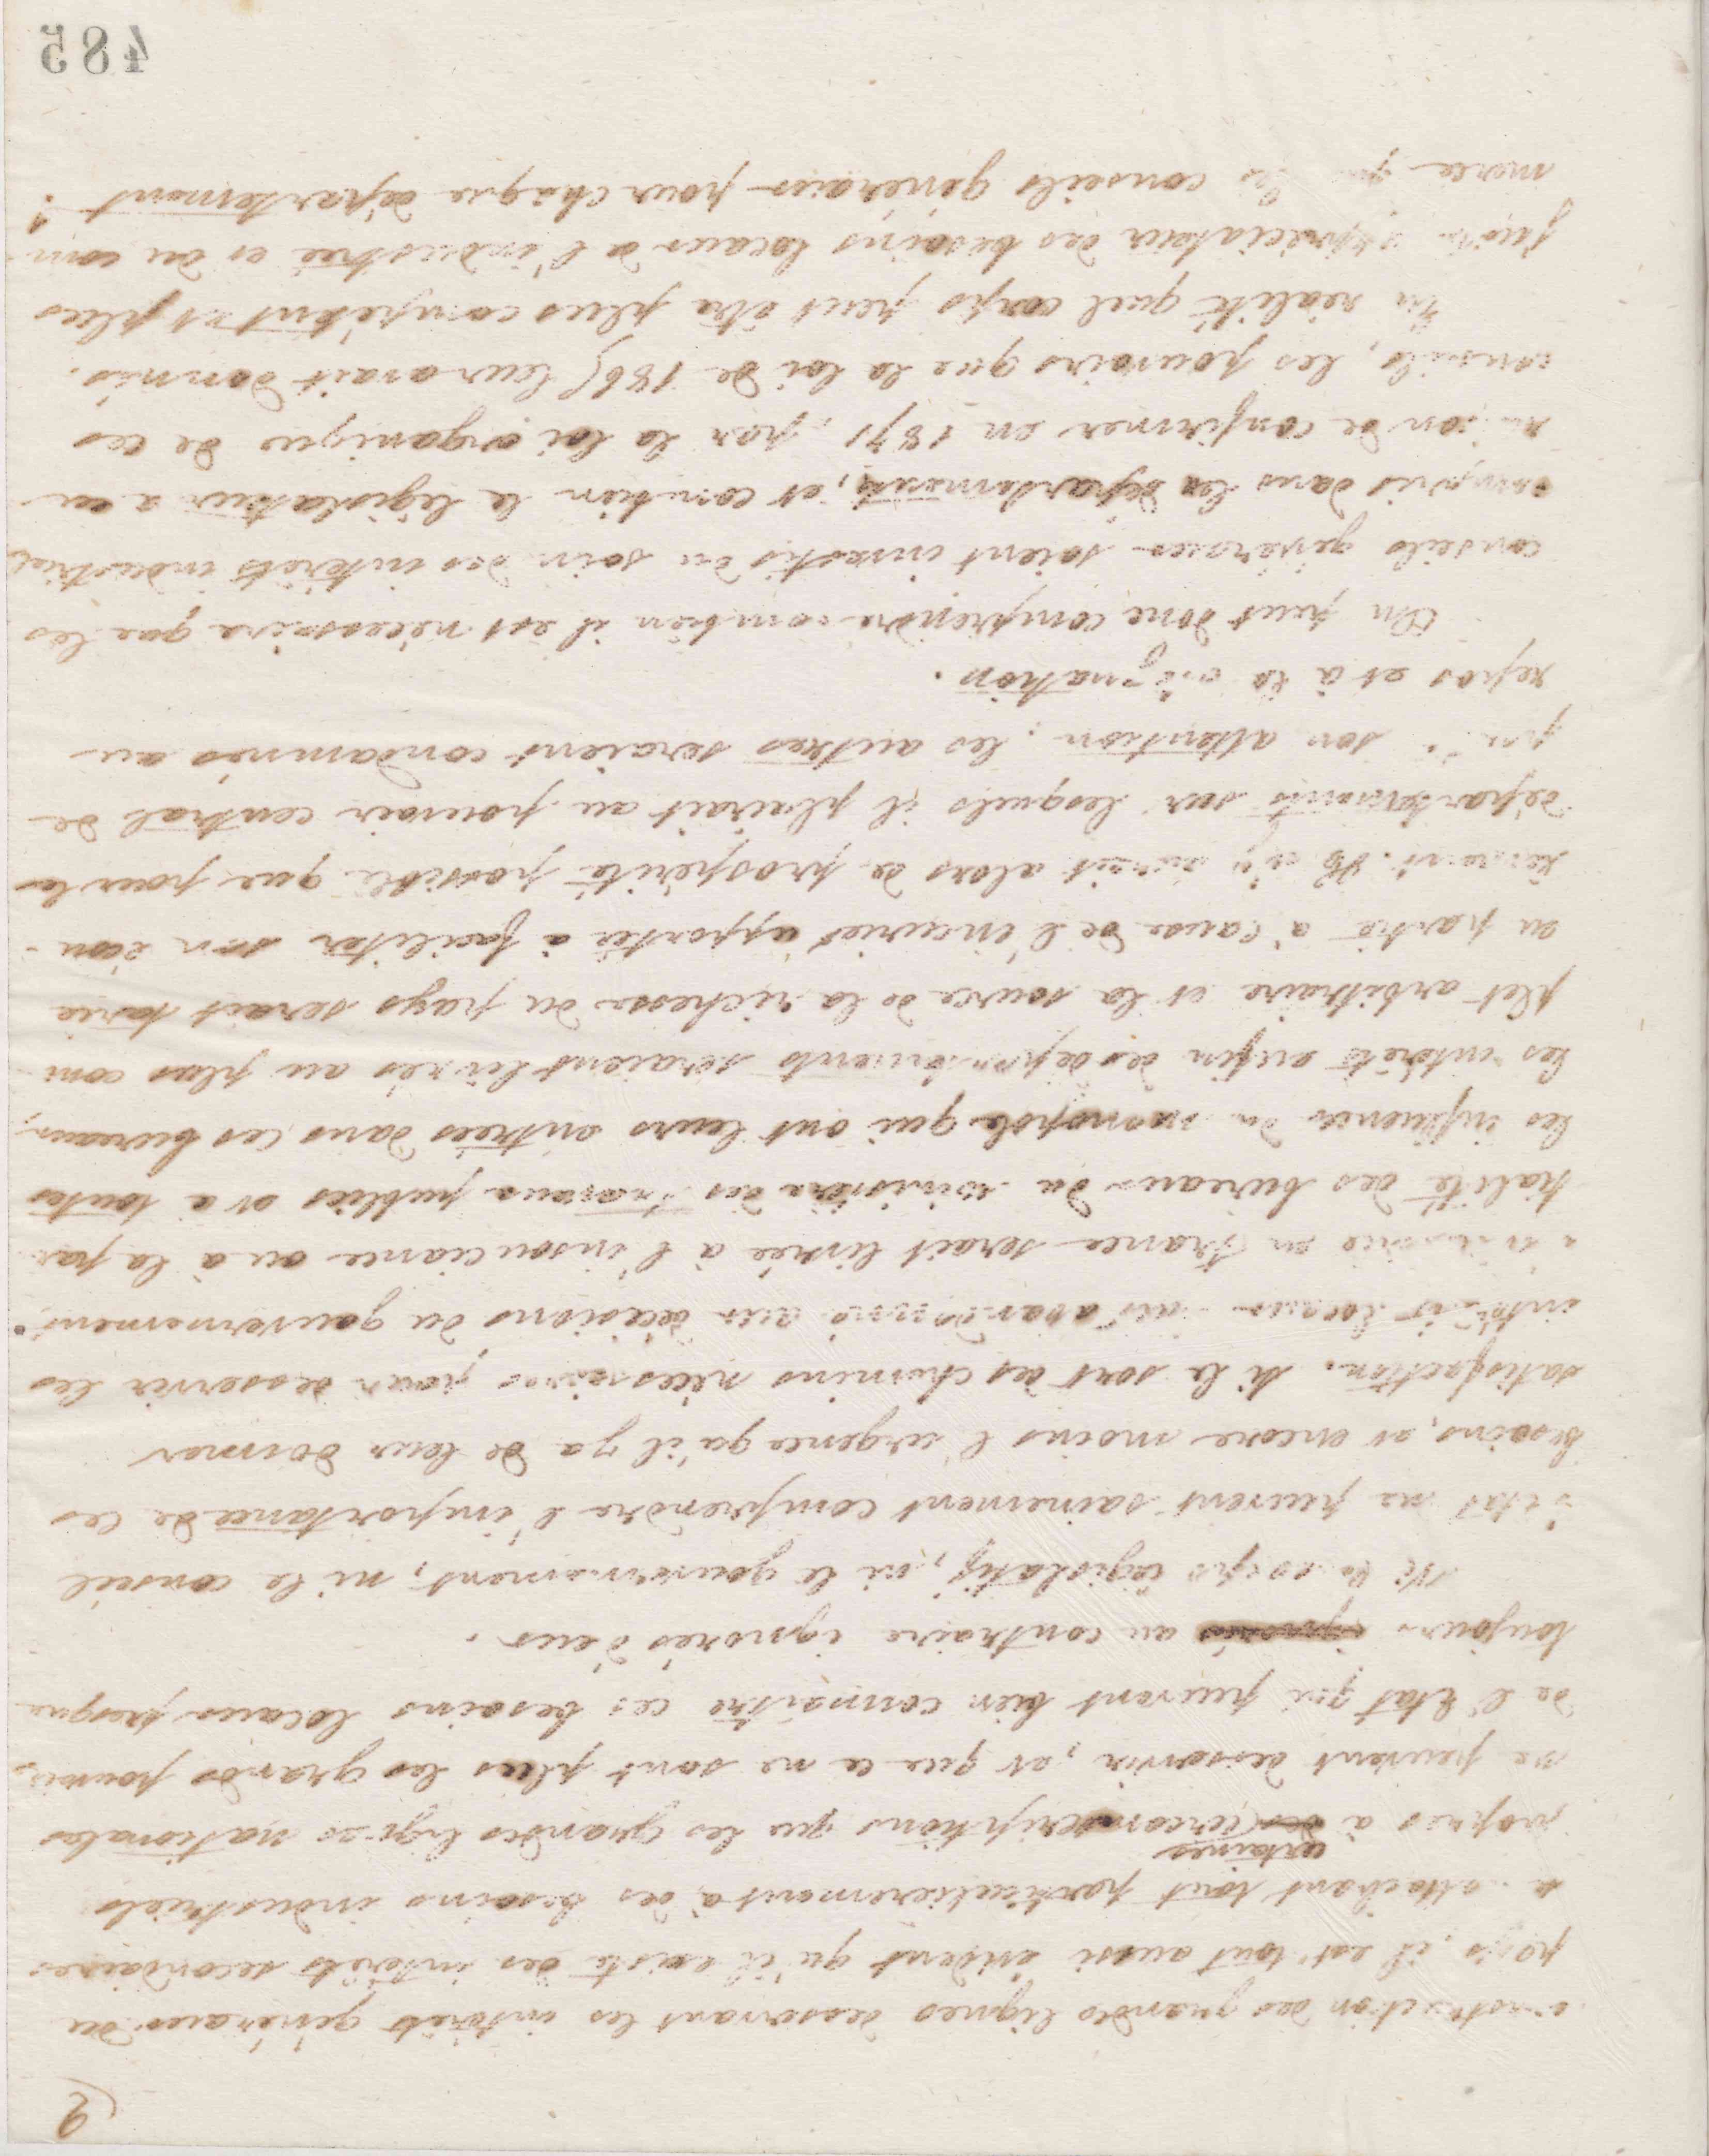 2
construction des grandes lignes desservant les intérêts généraux du
pays, il est tout aussi évident qu'il existe des intérêts secondaires
se rattachant tout particulièrement à des besoins industriels
certaines
propres à des circonscriptions que les grandes lignes nationales
ne peuvent desservir, et que ce ne sont plus les grands pouvoirs
de l'Etat qui peuvent bien connaître ces besoins locaux presque
toujours ignorés au contraire ignorés d'eux.
Ni le corps législatif, ni le gouvernement, ni le conseil
d'état ne peuvent sainement comprendre l'importance de ces
besoins, et encore moins l'urgence qu'il y a de leur donner
satisfaction. Si le sort des chemins nécessaires pour desservir les
intérêts locaux est abandonné aux décisions du gouvernement,
l'industrie en France serait livrée à l'insouciance ou à la par-
tialité des bureaux du ministère des travaux publics et à toutes
les influences du monopole qui ont leurs entrées dans ces bureaux;
les intérêts enfin des départements seraient livrés au plus com-
plet arbitraire et la source de la richesse du pays serait tarie
en partie à cause de l'incurie apportée à faciliter son écou-
lement. Il n'y aurait alors de prospérité possible que pour les
départements sur lesquels il plairait au pouvoir central de
son attention; les autres seraient condamnés au
repos et à la stagnation.
On peut donc comprendre combien il est nécessaire que les
conseils généraux soient investis du soin des intérêts industriels
compris dans les départements, et combien le législateur a eu
raison de confirmer en 1871, par la loi organique de ces
conseils, les pouvoirs que la loi de 1865 leur avait donnés.
En réalité quel corps peut être plus compétent et plus
juste appréciateur des besoins locaux de l'industrie et du com-
merce que les conseils généraux pour chaque département?
485